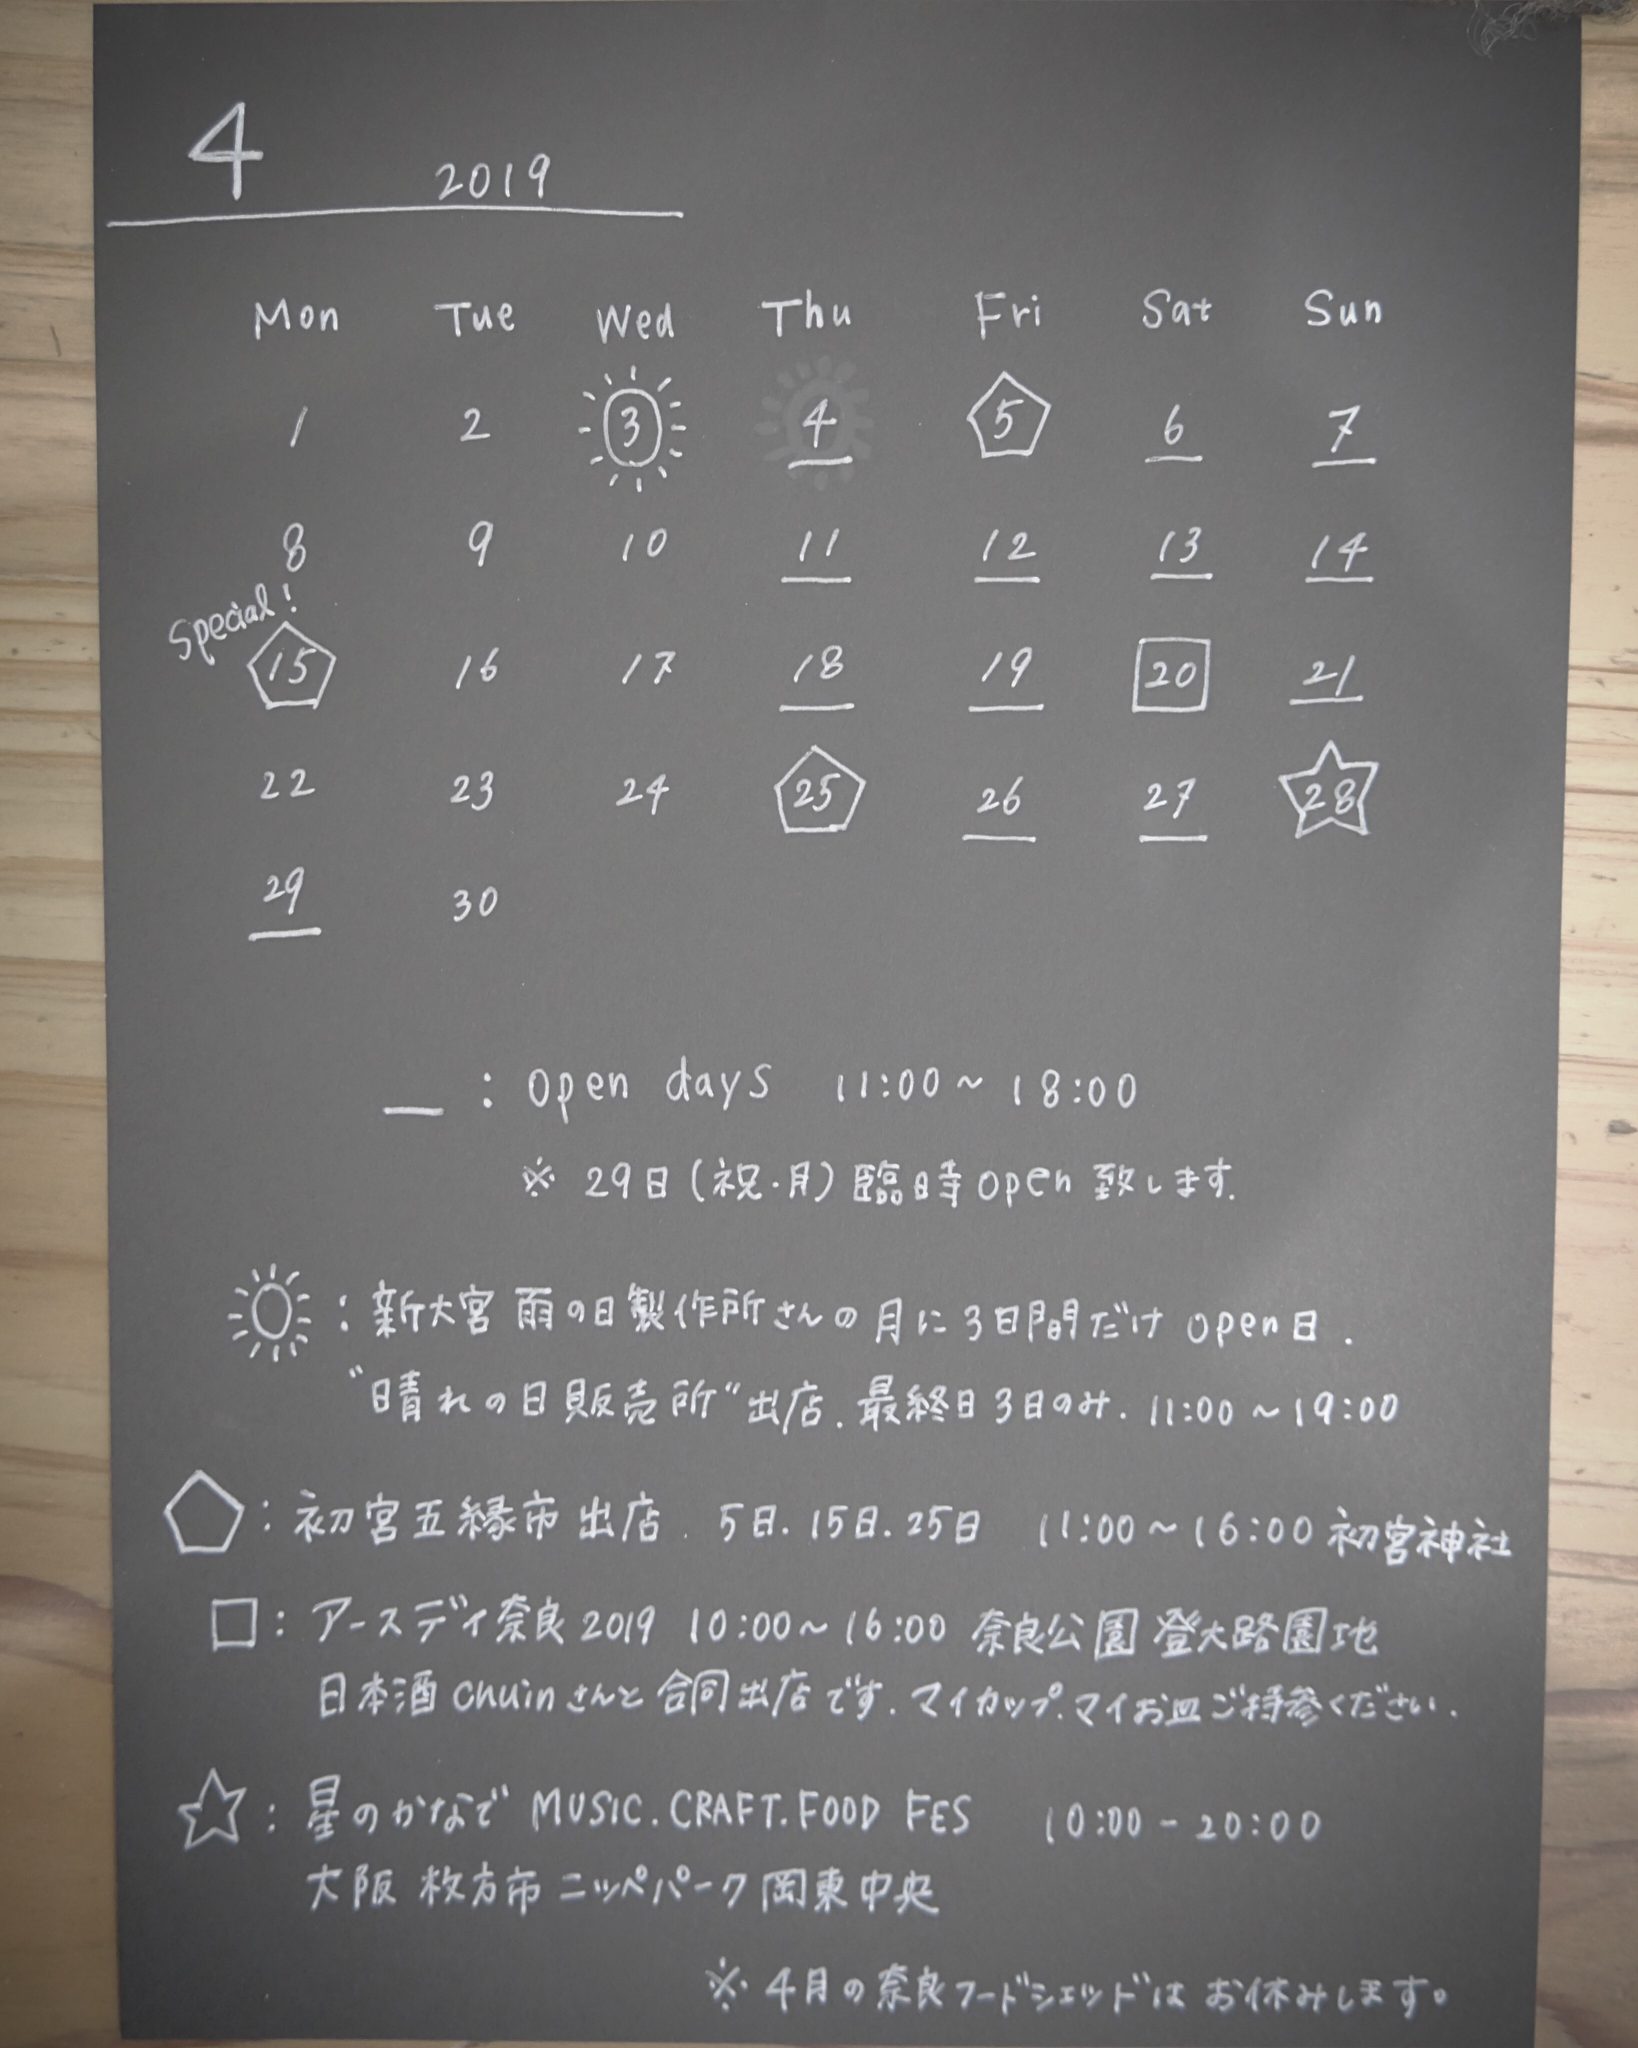 4 2019
Mon Tue Wed Thu Fri Sat Sun
1 2 3 4 5 6 7
8 9 10 11 12 13 14
Special!
15 16 17 18 19 20 21
22 23 24 25 26 27 28
29 30
: open days 11:00~18:00
※ 29日(祝・月)臨時open致します.
: 新大宮 雨の日製作所さんの月に3日間だけ open日.
"晴れの日販売所"出店. 最終日3日のみ. 11:00~19:00
: 初宮五縁市 出店. 5日. 15日. 25日 11:00~16:00 初宮神社
: アースデイ奈良2019 10:00~16:00 奈良公園 登大路園地
日本酒chuinさんと合同出店です. マイカップ. マイお皿ご持参ください.
: 星のかなで MUSIC. CRAFT. FOOD FES 10:00-20:00
大阪 枚方市 ニッペパーク岡東中央
※ 4月の奈良フードシェッドはお休みします。